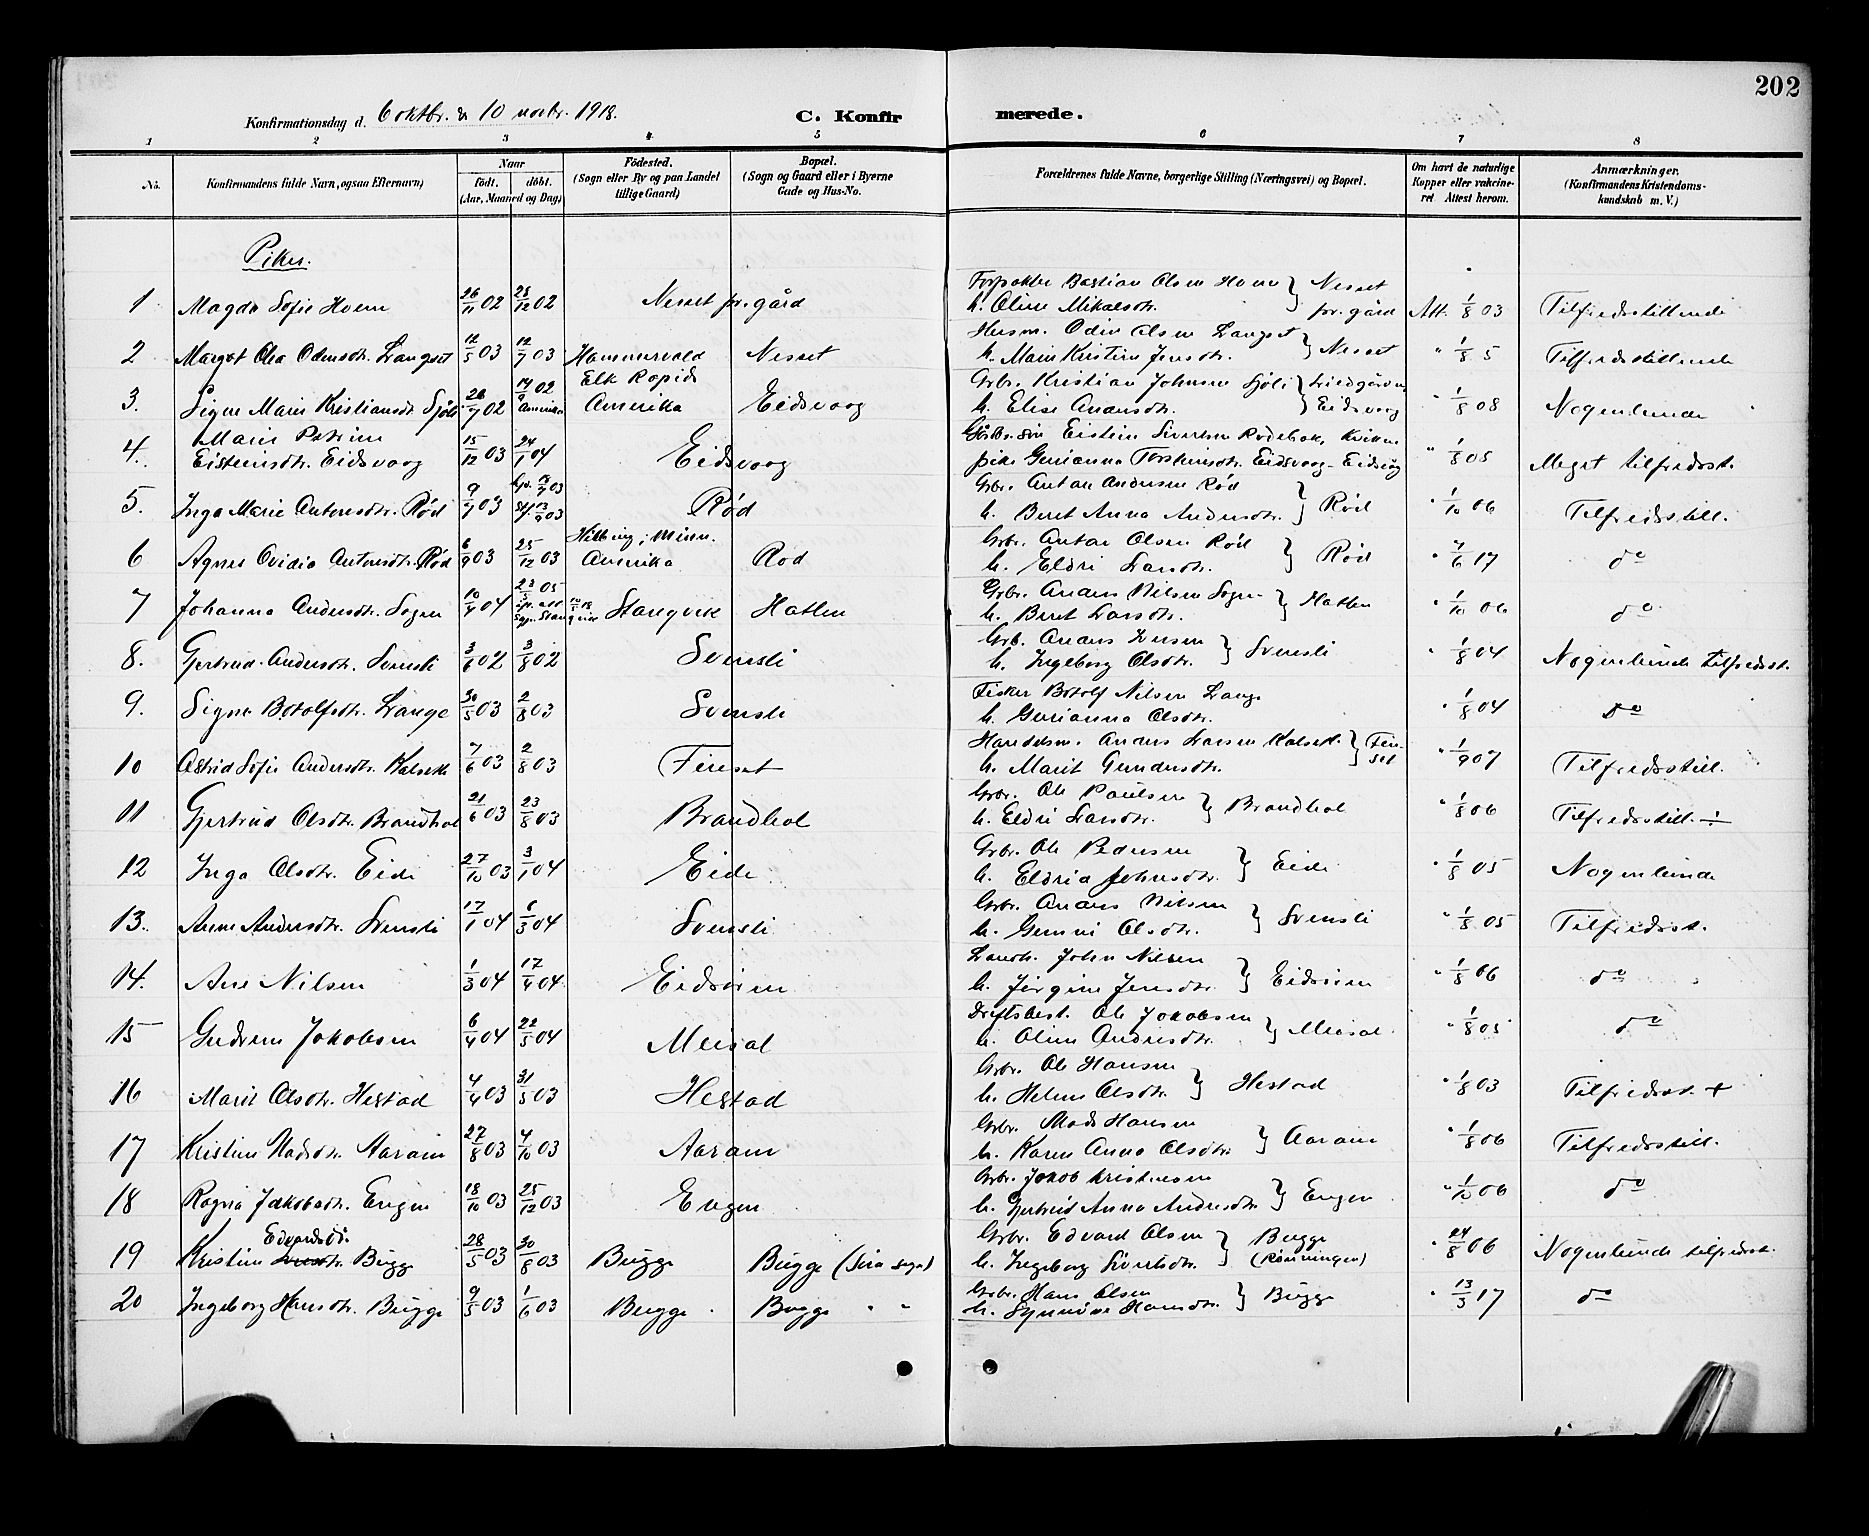 202
Konfirmationsdag d. 6 oktbr. & 10 novbr. 1918.
C. Konfirmerede.
1 2 3 4 5 6 7 8
No. Konfirmandens fulde Navn, ogsaa Efternavn) Naar født. døbt. (Aar, Maaned og Dag) Fødested. (Sogn eller By og paa Landet tillige Gaard) Bopæl. (Sogn og Gaard eller i Byerne Gade og Hus-No. Forældrenes fulde Navne, borgerlige Stilling (Næringsvei) og Bopæl. Om havt de naturlige Kopper eller vakcineret. Attest herom. Anmærkninger. (Konfirmandens Kristendomskundskab m. V.)
Piker.
1 Magda Sofie Hoem 26/11 02 28/12 02 Nesset pr.gård Forpakter Bastian Olsen Hoem h. Oline Mikalsdtr. } Nesset pr. gård Att. 1/8 03 Tilfredsstillende
2 Margot Olea Odinsdtr. Langset 12/5 03 12/7 03 Hammervold Nesset Husm. Odin Olsen Langset h. Marie Kristine Jensdtr. } Nesset " 1/8 5 Tilfredsstillende
3. Signe Marie Kristiansdt. Sjöli 28/7 02 14/9 02 Amerika Elk Rapids Amerika Eidsvaag Grbr. Kristian Johnsen Sjöli h. Elise Andersdtr. } Eidsvaag " 1/8 08 Nogenlunde
4. Marie Petrine Eisteinsdtr. Eidsvaag 15/12 03 24/1 04 Eidsvaag Eistein Sivertsen pike Gurianna Torsteinsdtr. Eidsvaag - " 1/8 05 Meget tilfredsst.
5. Inga Marie Antonsdtr. Rød 9/7 03 13/9 03 Rød Grbr. Anton Andersen Rød h. Beret Anna Andersdtr. } Rød " 1/10 06 Tilfredsstill.
6 Agnes Ovidia Antonsdtr. Rød 6/9 03 25/12 03 Hibbing, Minn. Amerika Rød Grbr. Anton Olsen Rød h. Eldri Larsdtr. } Rød " 4/6 17 do
7 Johanna Andersdtr. Sogn 10/4 04 23/5 05 Stangvik Hatlen Grbr. Anders Nilsen Sogn h. Beret Larsdtr. } Hatlen " 1/10 06 do
8. Gjertrud Andersdtr. Svensli 3/6 02 3/8 02 Svensli Grb. Anders Iversen h. Ingeborg Olsdtr. } Svensli " 1/8 04 Nogenlunde tilfredsst.
9. Signe Botolfsdtr. Lange 30/5 03 2/8 03 Svensli Fisker Botolf Nilsen Lange h. Gurianna Olsdtr. " 1/8 04 do
10 Astrid Sofie Andersdtr. 7/6 03 2/8 03 Fireset Handelsm. Anders Larsen h. Marit Gundersdtr. } " 1/9 07 Tilfredsstill.
11 Gjertrud Olsdtr. Brandhol 21/6 03 23/8 03 Brandhol Grbr. Ole Paulsen h. Eldri Larsdtr. } Brandhol " 1/8 06 Tilfredsstill. ÷
12 Inga Olsdtr. Eide 27/10 03 3/1 04 Eide Grbr. Ole Pedersen h. Eldrid Johnsdtr. } Eide " 1/8 05 Nogenlunde
13. Anne Andersdtr. Svensli 17/1 04 6/3 04 Svensli Grbr. Anders Nilsen h. Gunni Olsdtr. } Svensli " 1/8 05 Tilfredsst.
14. Ane Nilsen 1/3 04 17/4 04 Eidsören Landh. John Nilsen h. Jörgine Jensdtr. } Eidsören " 1/8 06 do
15 Gudrun Jakobsen 6/4 04 22/5 04 Meisal Driftsbest. Ole Jakobsen h. Oline Andersdtr. } Meisal " 1/8 05 do
16 Marit Olsdtr. Hestad 4/4 03 31/5 03 Hestad Grbr. Ole Hansen h. Helene Olsdtr. } Hestad " 1/8 03 Tilfredsst. +
17 Kristine Madsdtr. Aaram 27/8 03 4/10 03 Aaram Grbr. Mads Hansen h. Karen Anna Olsdtr. } Aaram " 1/8 06 Tilfredsstill.
18 Ragna Jakobsdtr. Engen 18/10 03 25/12 03 Engen Grbr. Jakob Kristensen h. Gjertrud Anna Andersdtr. } Engen " 1/10 06 do
19 Kristine Edvardsdtr. Bugge 28/5 03 30/8 03 Bugge Bugge (Sira sogn) Grbr. Edvard Olsen h. Ingeborg Sivertsdtr. } Bugge (Rønningen) " 24/8 06 Nogenlunde tilfredsst.
20 Ingeborg Hansdtr. Bugge 9/5 03 1/6 03 Bugge Bugge " " Grbr. Hans Olsen h. Synnöve Hansdtr. } Bugge " 13/3 17 do